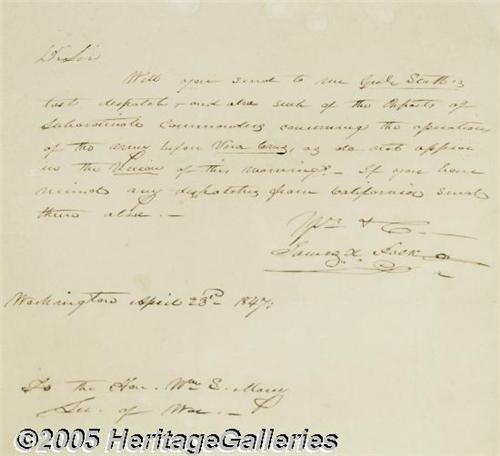 Dr Sir
Will you send to me Genl Scott's
last dispatch, and also such of the reports of
Subordinate Commanders concerning the operations
of the army before Vera Cruz, as do not appear
in the Union of this morning. If you have
any dispatches from California send
them also. —
Yrs &c —
James K. Polk
Washington April 23d 1847.
To the Hon. Wm L. Marcy
Sec. of War. —
©2005 HeritageGalleries